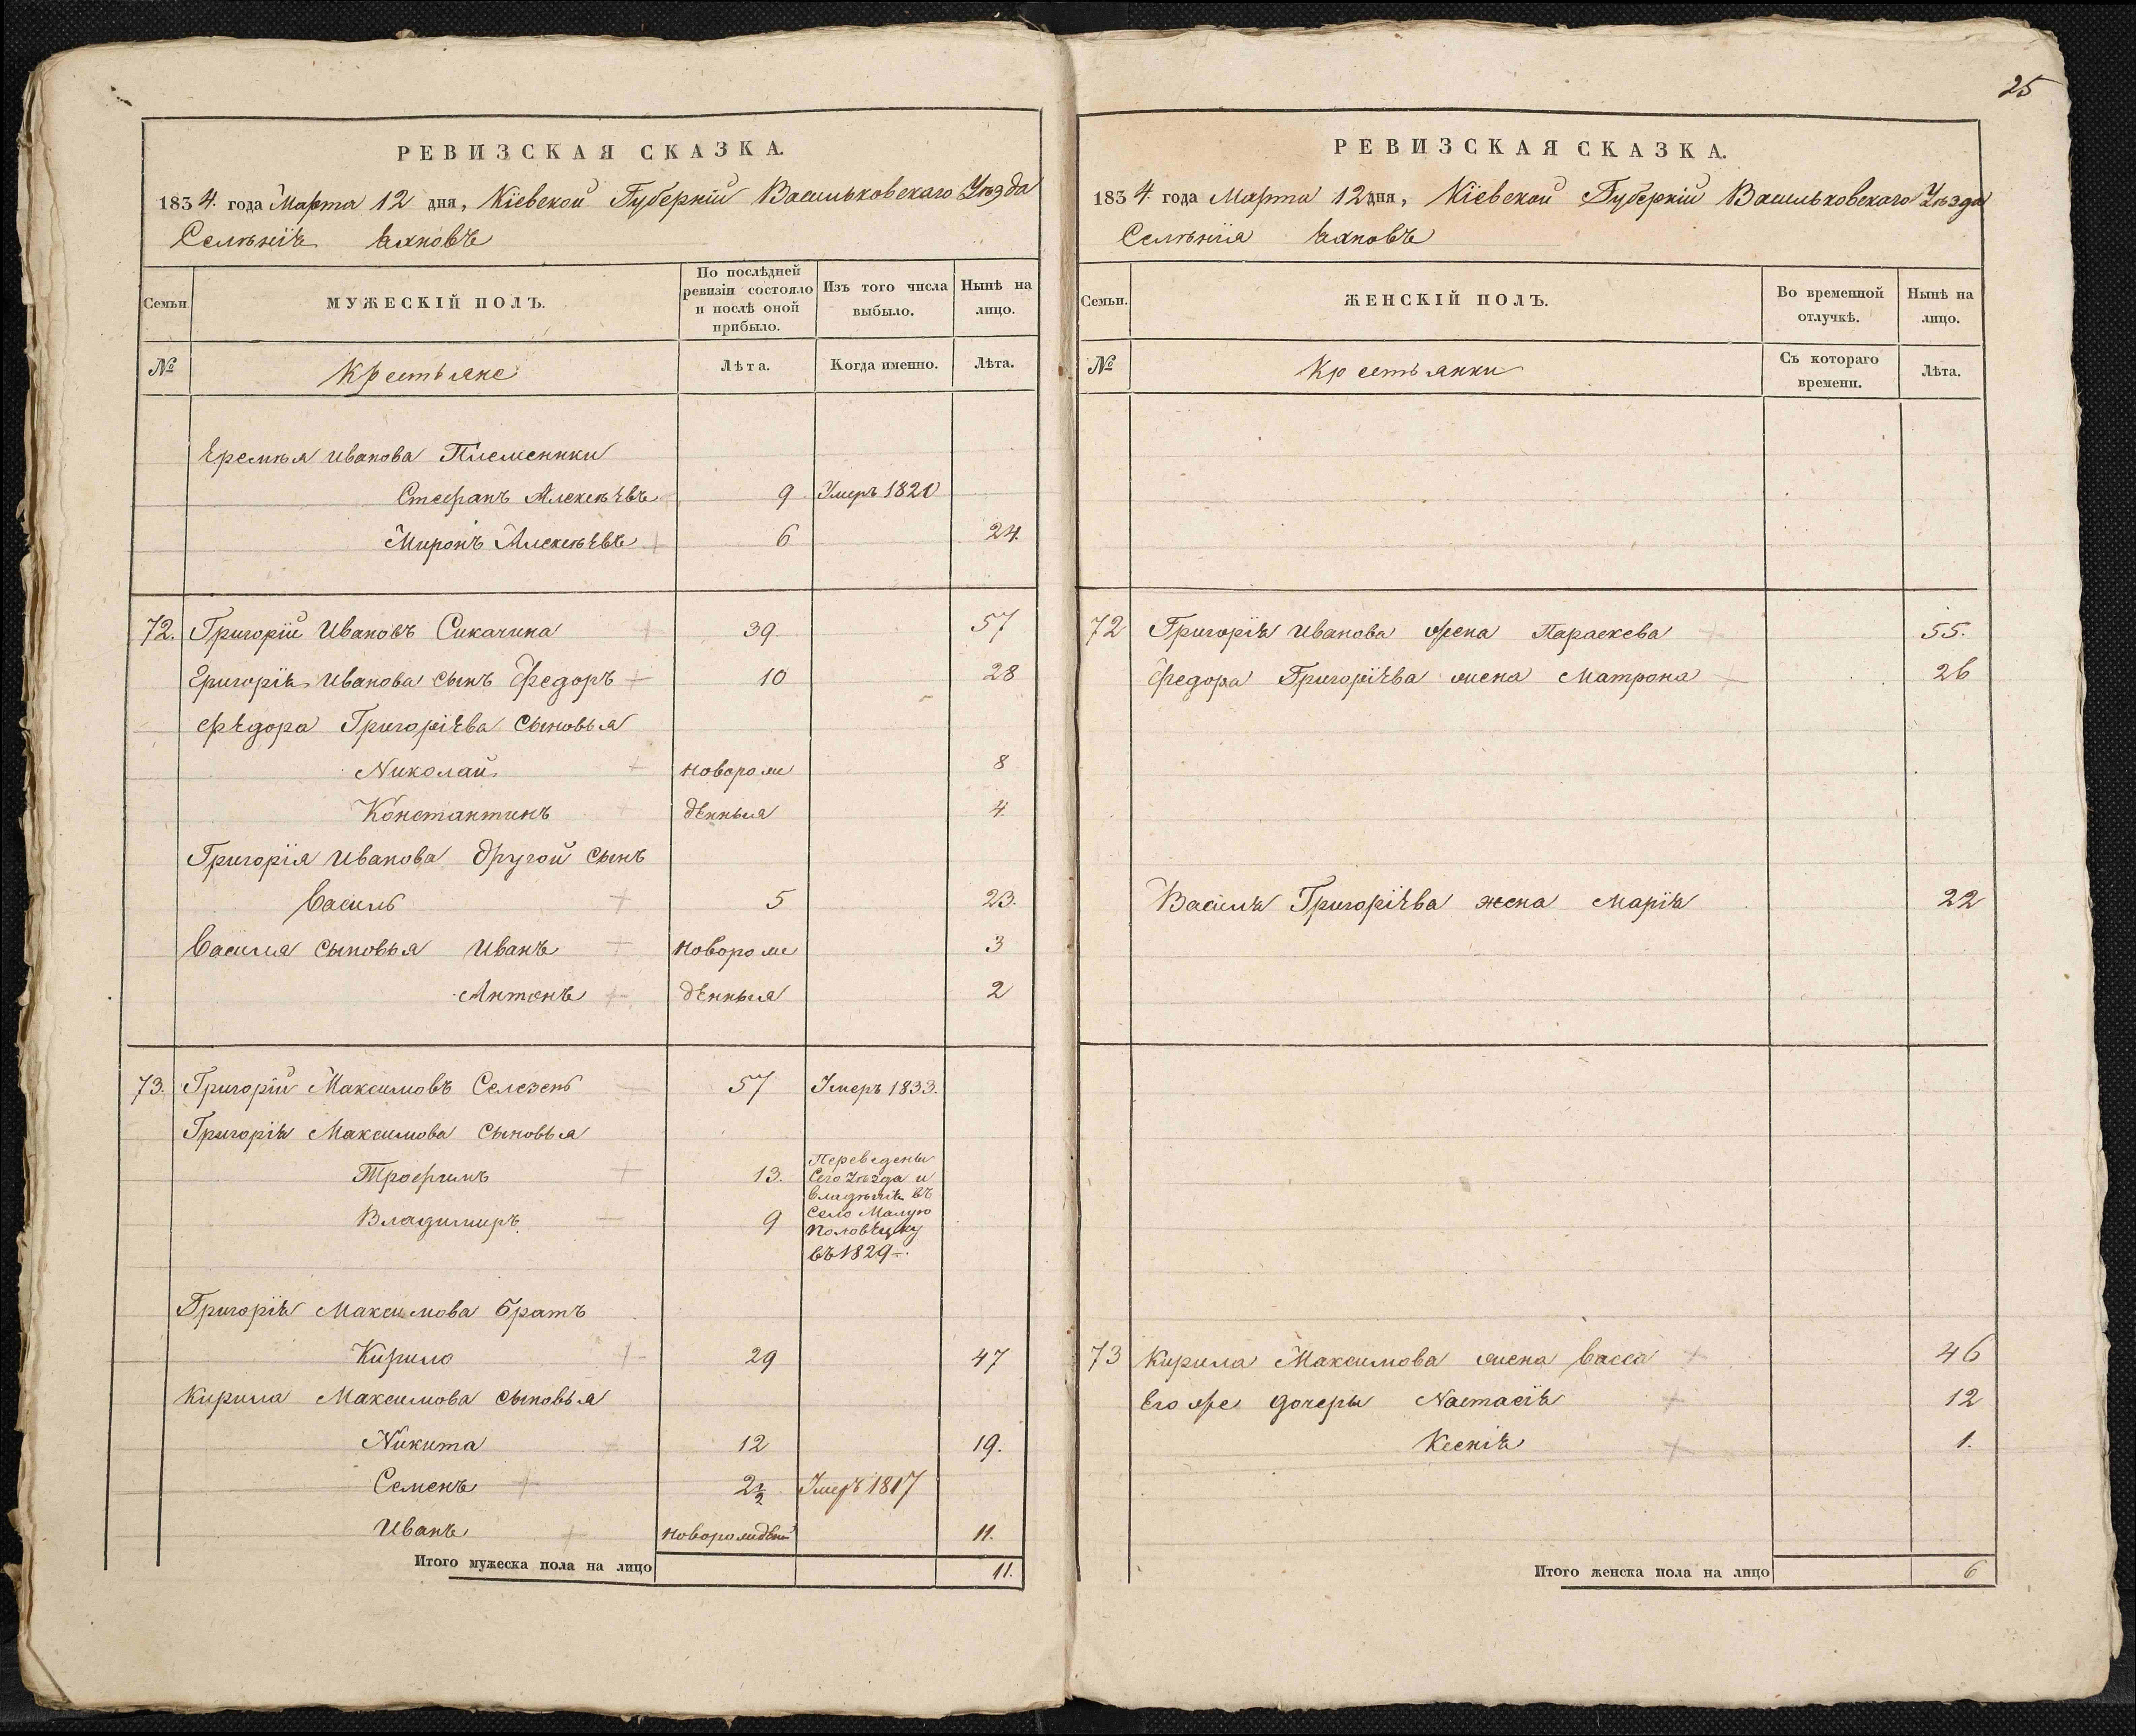 25
РЕВИЗСКАЯ СКАЗКА.
1834. года Марта 12 дня, Кіевской Губерніи Васильковскаго Уѣзда
Селѣнія Яхновъ
Семьи. МУЖЕСКІЙ ПОЛЪ. По послѣдней ревизіи состояло и послѣ оной прибыло. Изъ того числа выбыло. Нынѣ на лицо.
№ Крестьяне Лѣта. Когда именно. Лѣта.
Еремѣя Иванова Племенники
Стефанъ Алексѣевъ 9 Умеръ 1820
Миронъ Алексѣевъ 6 24.
72. Григорій Ивановъ Сикачина 39. 57
Григорія Иванова сынъ Федоръ 10 28
Федора Григоріева Сыновья
Николай новорож 8
Константинъ денныя 4.
Григорія Иванова другой сынъ
Василь 5 23.
Василя сыновья Иванъ новорож 3
Антонъ денныя 2
73. Григорій Максимовъ Селезень 57 Умеръ 1833.
Григорія Максимова Сыновья
Трофимъ 13. Переведены
Сего Уѣзда и
владѣнія въ
Владимиръ 9 Село Малую
Половецку
въ 1829
Григорія Максимова братъ
Кирило 29 47
Кирила Максимова сыновья
Никита 12 19.
Семенъ 2 1/2 Умеръ 1817
Иванъ новорожденый 11.
Итого мужеска пола на лицо 11.
РЕВИЗСКАЯ СКАЗКА.
1834. года Марта 12 дня, Кіевской Губерніи Васильковскаго Уѣзда
Селѣнія Яхновъ
Семьи. ЖЕНСКІЙ ПОЛЪ. Во временной отлучкѣ. Нынѣ на лицо.
№ Крестьянки Съ котораго времени. Лѣта.
72 Григорія Иванова жена Параскева 55.
Федора Григоріева жена Матрона 26
Василя Григоріева жена Марія 22
73 Кирила Максимова жена Васса 46
Его же дочеры Настасія 12
Ксенія 1.
Итого женска пола на лицо 6